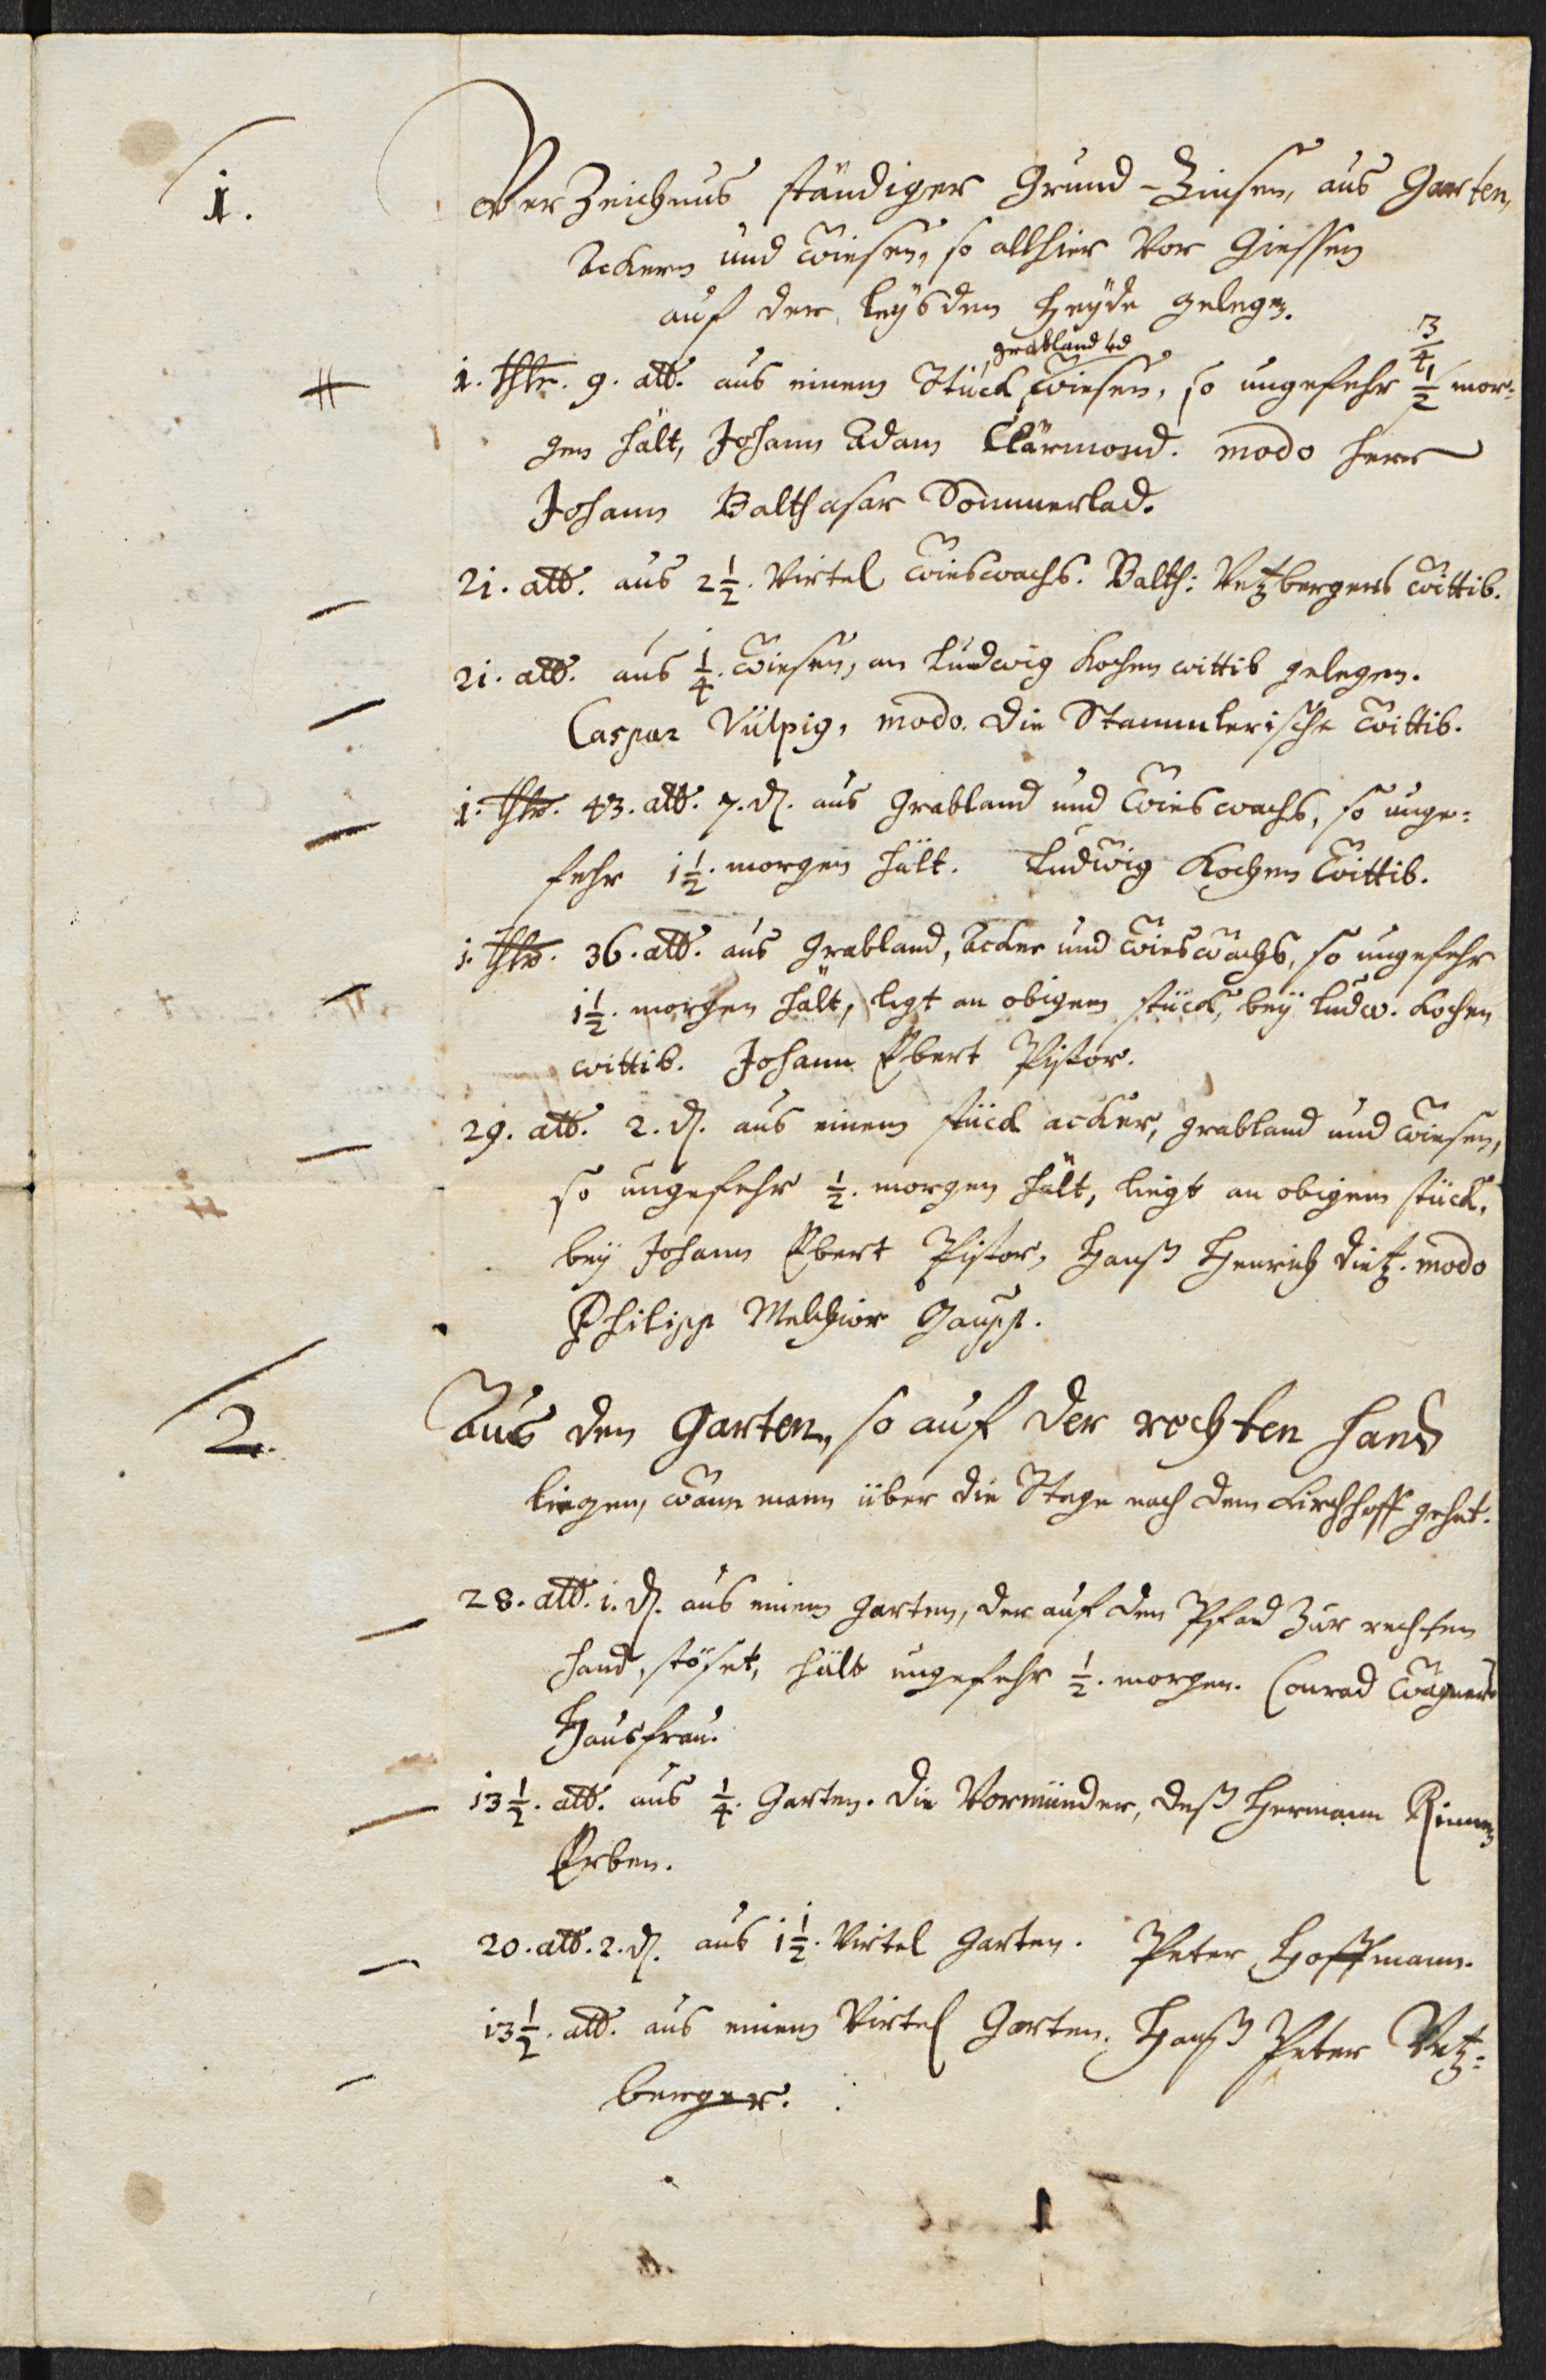 1.
VerZeichnus ständiger Grund-Zinsen, aus Garten,
Ackern und Wiesen, so allhier Vor Giessen
auf der Leÿsden Heyde gelegen.
grabland ud
3/4
1. thlr. 9. alb. aus einem Stück Wiesen, so ungefehr 1/2 mor-
gen hält, Johann Adam Clärmond. modo herr
Johann Balthasar Sommerlad.
21. alb. aus 2 1/2. Virtel Wieswachs. Balth: Vetzbergers Wittib.
21. alb. aus 1/4. Wiesen, an Ludwig Kochen wittib gelegen.
Caspar Vülpig, modo. die Stammlerische Wittib.
1. thlr. 43. alb. 7. d. aus Grabland und Wieswachs, so unge-
fehr 1 1/2. morgen hält. Ludwig Kochen Wittib.
1. thlr. 36. alb. aus Grabland, Acker und Wieswachs, so ungefehr
1 1/2. morgen hält, ligt an obigem stück, beÿ Ludw. Kochen
wittib. Johann Ebert Pistor.
29. alb. 2. d. aus einem stück acker, grabland und Wiesen,
so ungefehr 1/2. morgen hält, liegt an obigem stück,
beÿ Johann Ebert Pistor, Hanß Henrich Dietz. modo
Philipp Melchior Gaupp.
2.
Aus den Garten, so auf der rechten hand
liegen, wann mann über die Stege nach dem Kirchhoff gehet.
28. alb. 1. d. aus einem Garten, der auf den Pfad Zur rechten
hand, stöset, hält ungefehr 1/2. morgen. Conrad Wagners
Hausfrau.
13 1/2. alb. aus 1/4. Garten. die Vormünder, deß Hermann Rinnen
Erben.
20. alb. 2. d. aus 1 1/2. Virtel Garten. Peter Hoffmann.
13 1/2. alb. aus einem Virtel Garten. Hanß Peter Vetz-
berger.
1